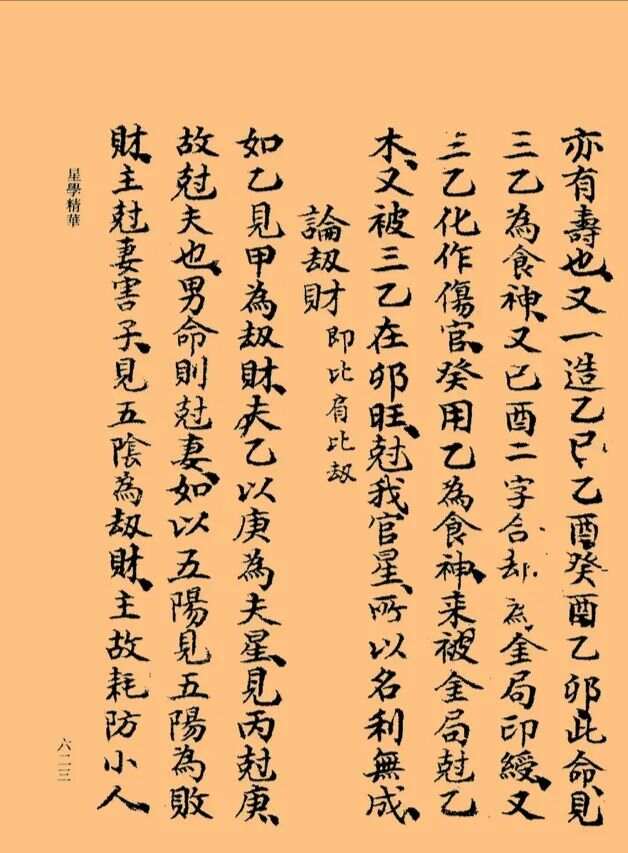 亦有壽也又一造乙巳乙酉癸酉乙卯此命見
三乙為食神又巳酉二字合却為金局印綬又
三乙化作傷官癸用乙為食神来被金局尅乙
木又被三乙在卯旺尅我官星所以名利無成
論刼財 即比肩比刼
如乙見甲為刼財夫乙以庚為夫星見丙尅庚
故尅夫也男命則尅妻如以五陽見五陽為敗
財主尅妻害子見五陰為刼財主故耗防小人
星學精華
六二三